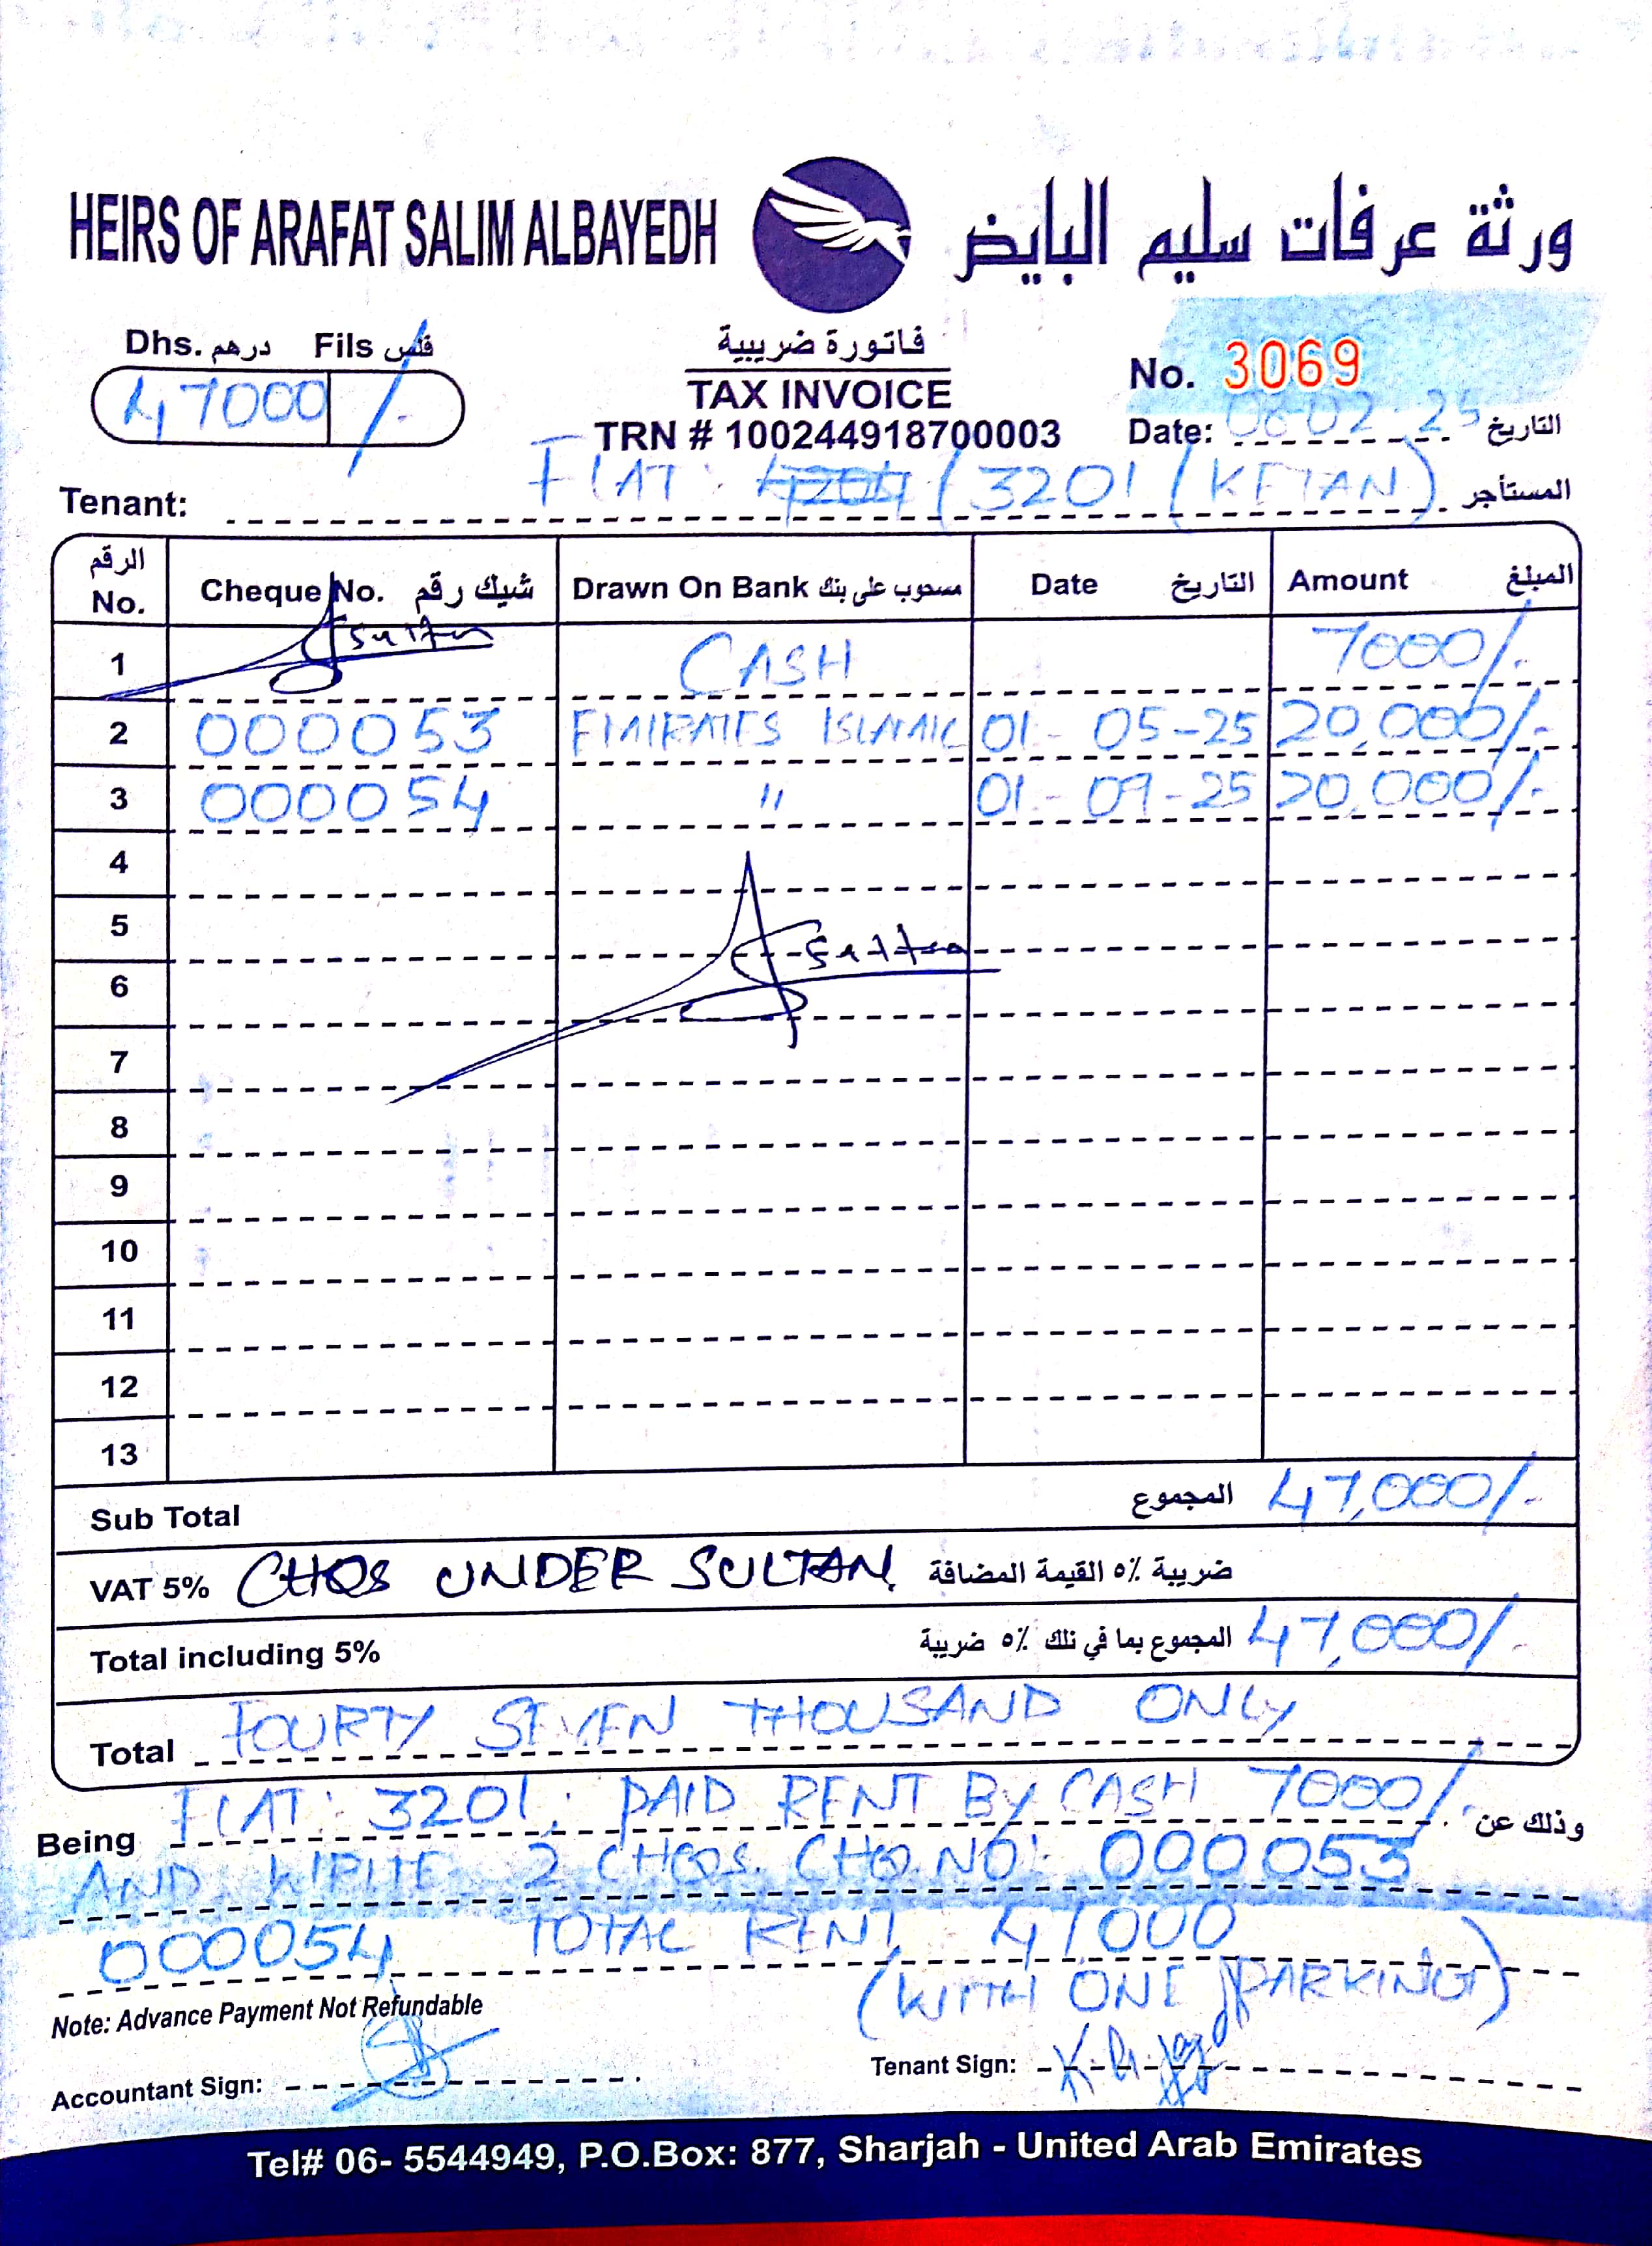 HEIRS OF ARAFAT SALIM ALBAYEDH ورثة عرفات سليم البايض
Dhs. درهم Fils فلس
47000 /-
فاتورة ضريبية
TAX INVOICE
TRN # 100244918700003
No. 3069
Date: 06-02-25 التاريخ
Tenant: FLAT: 4204 / 3201 (KETAN) المستأجر
الرقم No. Cheque No. شيك رقم Drawn On Bank مسحوب على بنك Date التاريخ Amount المبلغ
1 Sultan CASH 7000/-
2 000053 EMIRATES ISLAMIC 01-05-25 20,000/-
3 000054 " 01-09-25 20,000/-
4
5 Sultan
6
7
8
9
10
11
12
13
Sub Total المجموع 47,000/-
VAT 5% CHQS UNDER SULTAN ضريبة ٥٪ القيمة المضافة
Total including 5% المجموع بما في ذلك ٥٪ ضريبة 47,000/-
Total FOURTY SEVEN THOUSAND ONLY
Being FLAT: 3201, PAID RENT By CASH 7000/- وذلك عن
AND 2 CHQS. CHQ.NO: 000053
000054 TOTAL RENT 47000
(WITH ONE PARKING)
Note: Advance Payment Not Refundable
Accountant Sign:
Tenant Sign:
Tel# 06- 5544949, P.O.Box: 877, Sharjah - United Arab Emirates